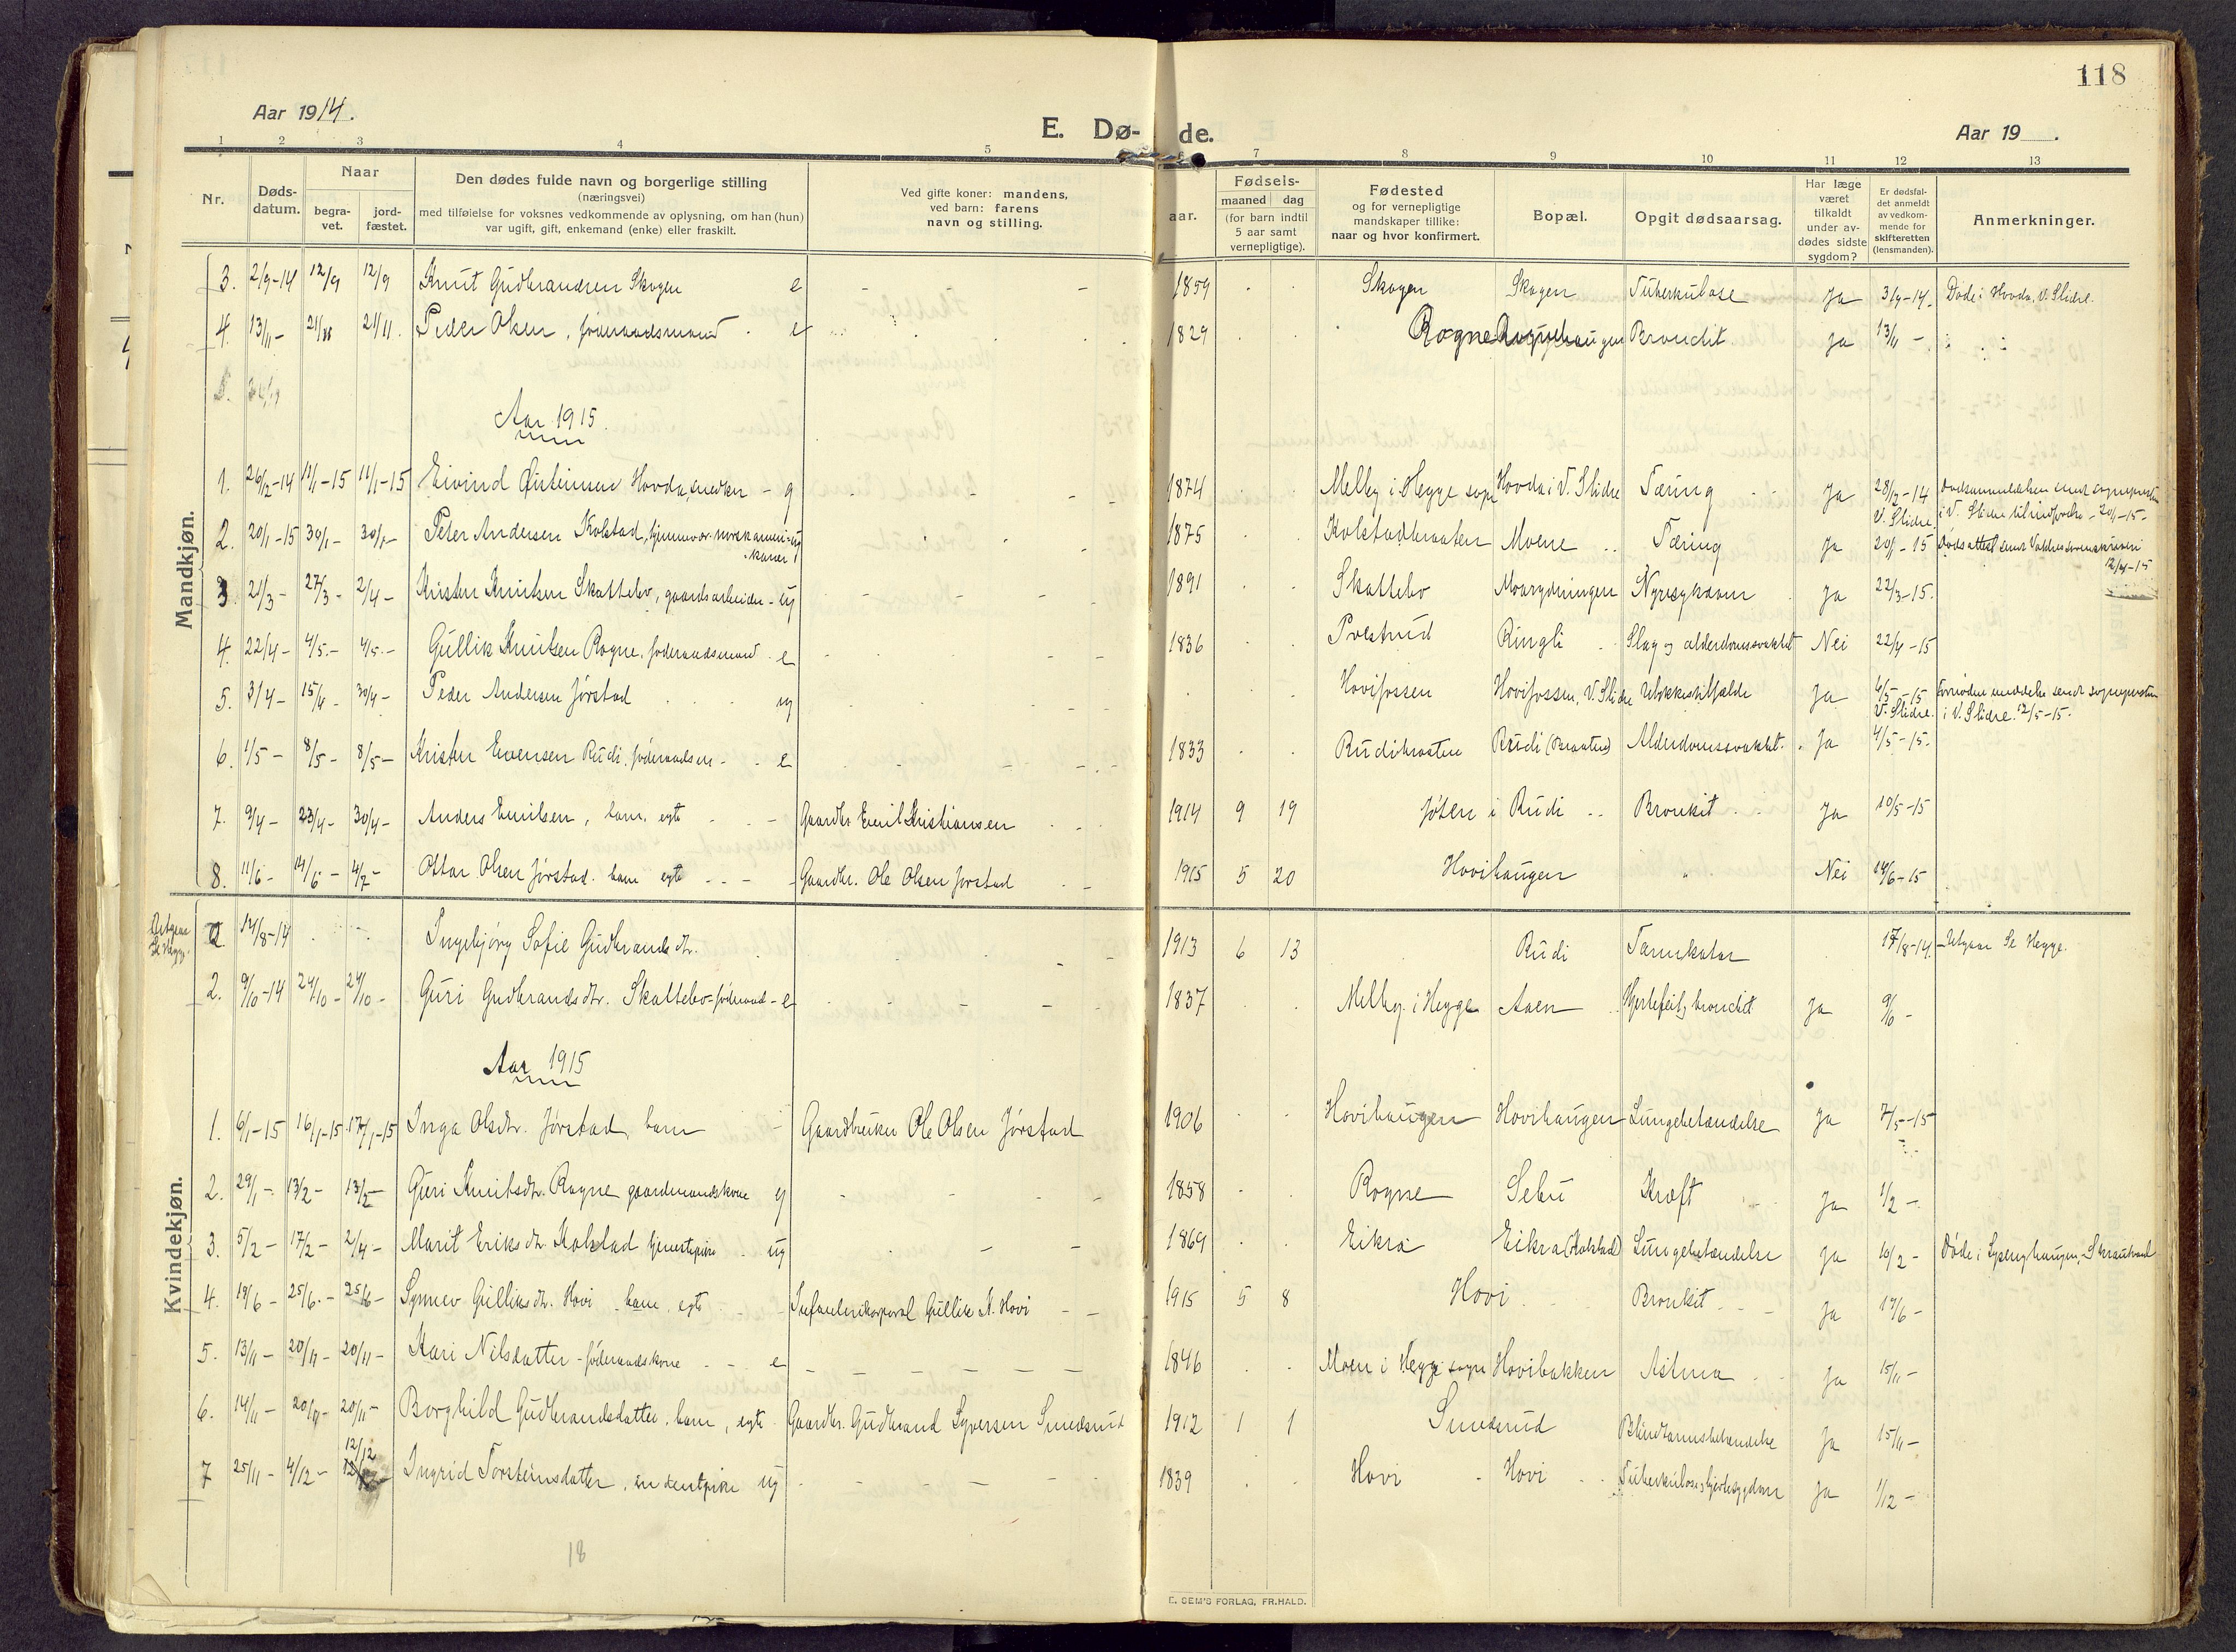 118
Aar 1914.
E. Dø-de.
Aar 19 .
1 2 3 4 5 7 8 9 10 11 12 13
Nr.
Døds-datum.
Naar
begra-vet.
jord-fæstet.
Den dødes fulde navn og borgerlige stilling
(næringsvei)
med tilføielse for voksnes vedkommende av oplysning, om han (hun)
var ugift, gift, enkemand (enke) eller fraskilt.
Ved gifte koner: mandens,
ved barn: farens
navn og stilling.
aar.
Fødsels-
maaned dag
(for barn indtil
5 aar samt
vernepligtige).
Fødested
og for vernepligtige
mandskaper tillike:
naar og hvor konfirmert.
Bopæl.
Opgit dødsaarsag.
Har læge
været
tilkaldt
under av-
dødes sidste
sygdom?
Er dødsfal-
det anmeldt
av vedkom-
mende for
skifteretten
(lensmanden).
Anmerkninger.
Mandkjøn.
3. 2/9-14 12/9 12/9 Knut Gudbrandsen Skogen e 1859 Skogen Skogen Tuberkulose Ja 3/9-14. Døde i Hovda, V. Slidre.
4. 13/11- 21/11 21/11. Peder Olsen, føderaadsmand e 1829 Rogne Rognehaugen Bronchit Ja 13/11 -
5.
Aar 1915.
1. 26/2-14 11/1-15 11/1-15 Eivind Østensen Hovda, snedker - g 1874 Melby i Hegge sogn Hovda i V. Slidre Tæring Ja 28/2-14 V. Slidre. i V. Slidre 20/1-15-
2. 20/1-15 30/1- 30/1- Peter Andersen Kolstad, hjemmevær. norskameri-kaner ug 1875 Kolstadbraaten Moene Tæring Ja 20/1-15 Dødsattest sendt Valdres sorenskriveri 12/4-15
3. 21/3- 27/3- 2/4- Kristen Knutsen Skattebo, gaardsarbeider - ug 1891 Skattebo Moarydningen Nyresykdom Ja 22/3-15.
4. 22/4- 4/5.- 4/5.- Gullik Knutsen Rogne, føderaadsmand e 1836 Polstrud Ringli Slag og alderdomssvakhet Nei 22/4-15
5. 3/4- 15/4- 30/4- Peder Andersen Jørstad ug Hovifossen Hovifossen, V. Slidre Ulykkestilfælde Ja 6/5-15 V. Slidre. sendt sogneprestin i V. Slidre. 12/5-15.
6. 1/5- 8/5- 8/5- Kristen Evensen Rudi, føderaadsm - e 1833 Rudibraaten Rudi (Braaten) Alderdomssvakhet. Ja 4/5-15.
7. 9/4- 23/4- 30/4- Anders Emilsen, barn, egte Gaardbr. Emil Kristiansen 1914 9 19 Jøten i Rudi Bronkit Ja 10/5-15
8. 11/6- 14/6- 4/7- Ottar Olsen Jørstad. barn egte Gaardbr. Ole Olsen Jørstad 1915 5 20 Hovihaugen " Nei 14/6-15
Kvindekjøn.
Utgaar Se Hegge.
14/8-14 Ingebjørg Sofie Gudbrandsdtr. 1913 6 13 Rudi Tarmkatar 17/8-14. - Utgaar Se Hegge.
2. 9/10-14 24/10- 24/10- Guri Gudbrandsdtr. Skattebo - føderaad - e 1837 Melby i Hegge Aaen Hjertefeil, bronchit Ja 9/10 -
Aar 1915
1. 6/1-15 16/1-15 17/1-15 Inga Olsdtr. Jørstad, barn Gaardbruker Ole Olsen Jørstad 1906 Hovihaugen Hovihaugen Lungebetændelse Ja 7/5-15
2. 29/1- 13/2- 13/2- Guri Knutsdtr. Rogne gaardmandskone g 1858 Rogne Sebu Kræft Ja 1/2 -
3. 5/2- 17/2- 2/4- Marit Eriksdtr. Kolstad tjenestepike ug 1869 Eikra Eikra (Kolstad) Lungebetændelse Ja 10/2 - Døde i Skrautvaal
4. 19/6- 25/6.- 25/6- Synnev Gulliksdtr. Hovi - barn, egte Infanterikorporal Gullik K. Hovi 1915 5 8 Hovi Bronkit Ja 19/6 -
5. 13/11- 20/11- 20/11- Kari Nilsdatter - føderaadskone e 1846 Moen i Hegge sogn Hovibakken Astma Ja 15/11 -
6. 14/11- 20/11- 20/11- Borghild Gudbrandsdatter, barn, egte Gaardbr. Gudbrand Syversen Smedsrud 1912 1 1 Smedsrud Blindtarmsbetændelse Ja 15/11 -
7 25/11- 4/12- 12/12 Ingrid Torsteinsdatter, ug 1839 Hovi Hovi Tuberkulose, hjertesygdom Ja 1/12 -
18
E. SEM'S FORLAG, FR.HALD.